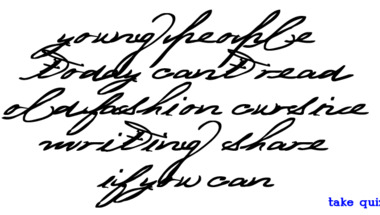 young people
today can't read
old fashion cursive
writing share
if you can
take qui